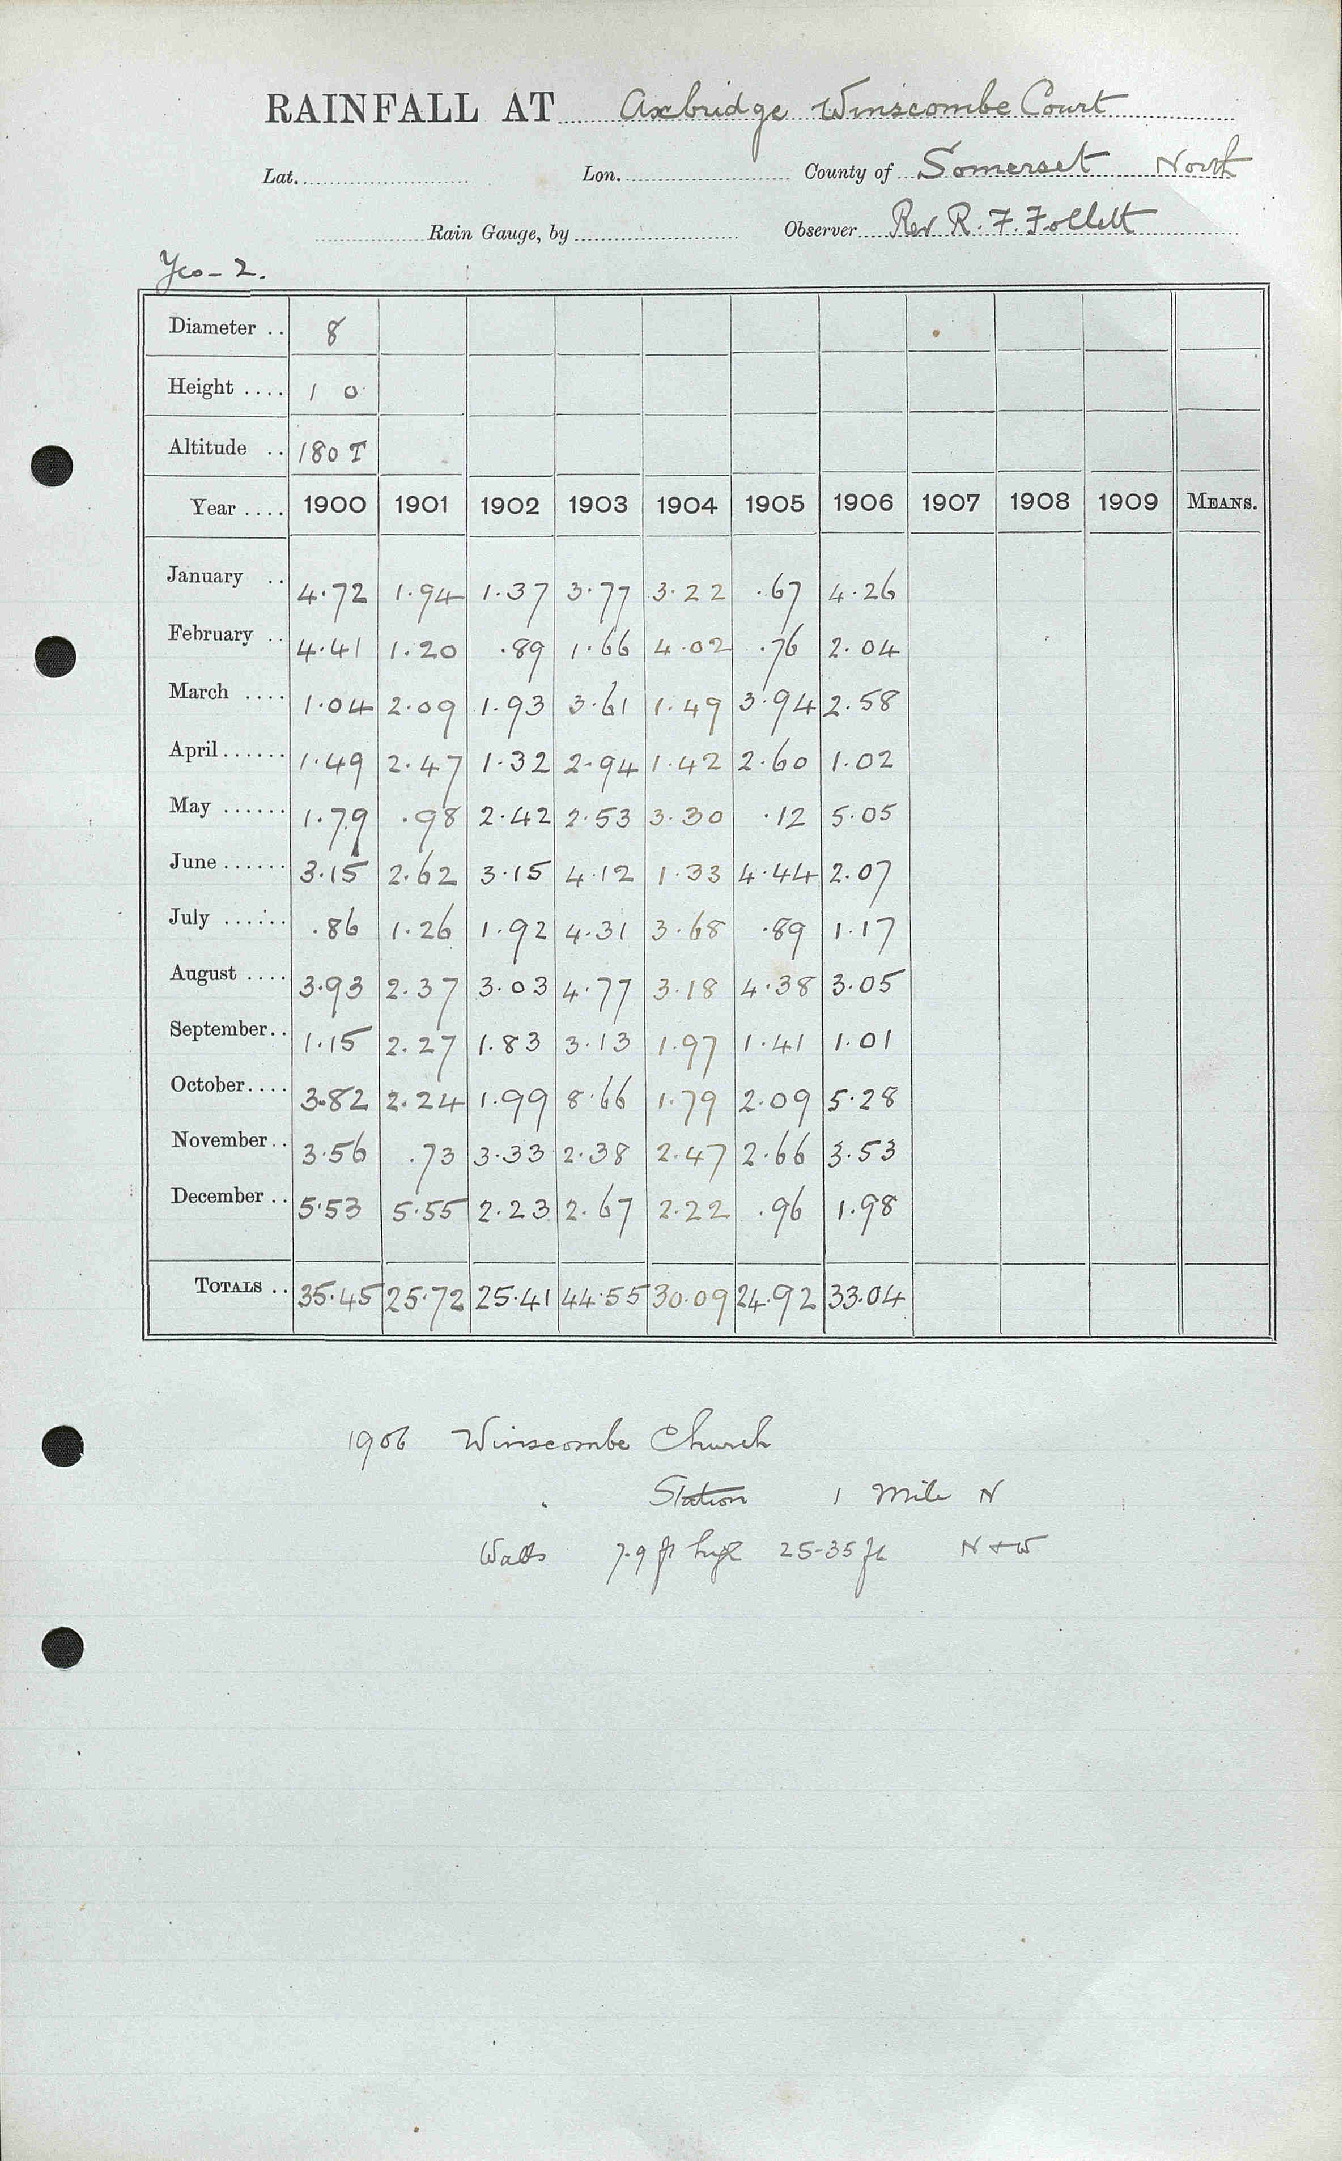 RAINFALL AT Axbridge Winscombe Court
Lat. Lon. County of Somerset North
Rain Gauge, by Observer Rev R. F. Follett
Yeo - 2.
Diameter .. 8
Height .... 1 0
Altitude .. 180 T
Year .... 1900 1901 1902 1903 1904 1905 1906 1907 1908 1909 MEANS.
January .. 4.72 1.94 1.37 3.77 3.22 .67 4.26
February .. 4.41 1.20 .89 1.66 4.02 .76 2.04
March .... 1.04 2.09 1.93 3.61 1.49 3.94 2.58
April ...... 1.49 2.47 1.32 2.94 1.42 2.60 1.02
May ...... 1.79 .98 2.42 2.53 3.30 .12 5.05
June ...... 3.15 2.62 3.15 4.12 1.33 4.44 2.07
July ...... .86 1.26 1.92 4.31 3.68 .89 1.17
August .... 3.93 2.37 3.03 4.77 3.18 4.38 3.05
September.. 1.15 2.27 1.83 3.13 1.97 1.41 1.01
October.... 3.82 2.24 1.99 8.66 1.79 2.09 5.28
November.. 3.56 .73 3.33 2.38 2.47 2.66 3.53
December .. 5.53 5.55 2.23 2.67 2.22 .96 1.98
TOTALS .. 35.45 25.72 25.41 44.55 30.09 24.92 33.04
1906 Winscombe Church
Station 1 Mile N
Walls 7-9 ft high 25-35 ft N + W